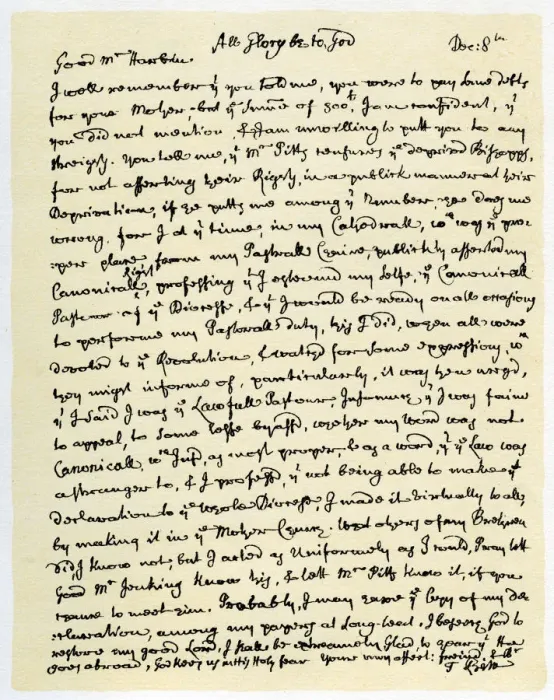 All Glory be to God
Dec: 8th
Good Mr Harbin.
I well remember yt you told me, you were to pay some debts
for your Mother, but ye summe of 500l, I am confident, yt
you did not mention, & I am unwilling to putt you to any
streights. You tell me, yt Mr Pitts censures ye deprived Bishopps,
for not asserting their Rights, in a publick manner at their
Deprivation, if he putts me among yt Number, he does me
wrong. for I at yt time, in my Cathedrall, wch was ye pro-
:per place, from my Pastorall Chaire, publickly asserted my
Canonicall Right, professing yt I esteemed my selfe, ye Canonicall
Pastour of ye Diocesse, & yt I would be ready on all occasions
to performe my Pastorall duty, this I did, when all were
devoted to ye Revolution, & waited for some expression, wch
they might informe of, particularly, it was then urg'd,
yt I said I was ye Lawfull Pastour, yt I was faine
to appeal, to some lesse byass'd, whether my word was not
Canonicall, wch I us'd, as most proper, & as a word, yt ye Law was
a stranger to, & I profess'd, yt not being able to make yt
declaration to ye whole Diocesse, I made it virtually to all,
by making it in ye Mother Church. What others of my Brethren
did, I know not, but I acted as Uniformely as I could, Pray lett
Good Mr Jenkins know this, & lett Mr Pitts know it, if you
chance to meet him. Probably, I may have ye Copy of my de
:claration, among my papers at Long-leat, I beseech God to
restore my good Lord, I shall be extreamely Glad to heare yt He
goes abroad, God keep us in His Holy fear Your very affect: friend & Br
T Kenn